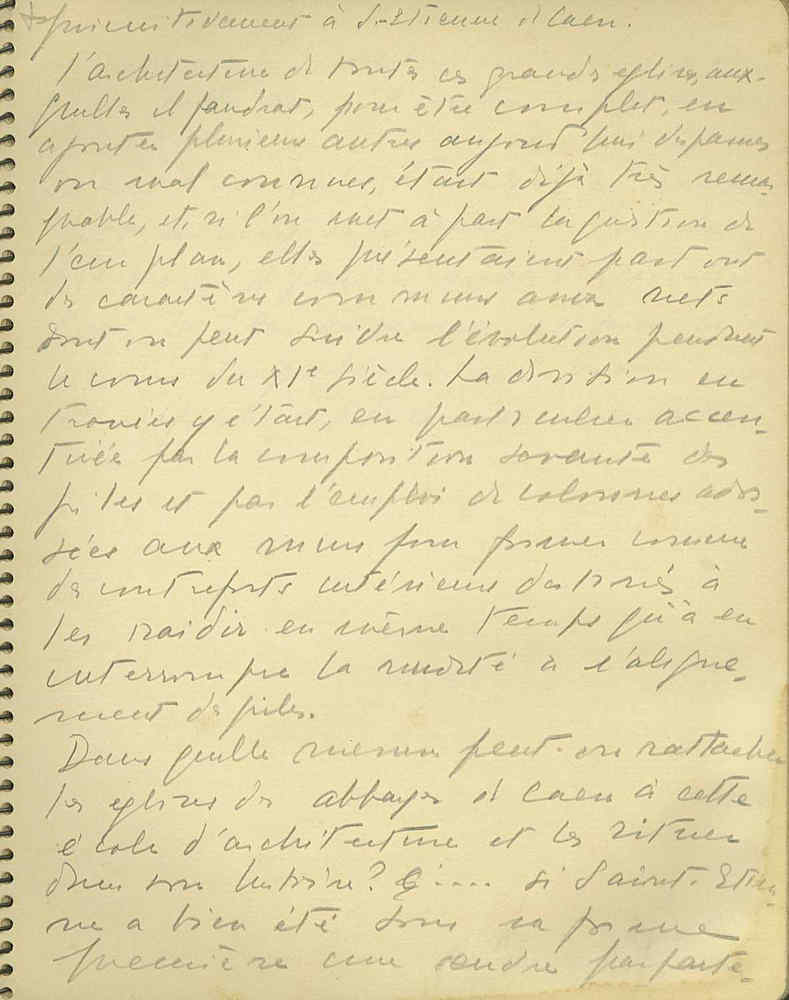 primitivement à S-Etienne de Caen.
l'architecture de toutes ces grandes églises, aux-
quelles il faudrait, pour être complet, en
ajouter plusieurs autres aujourd'hui disparues
ou mal connues, était déjà très remar-
quable, et, si l'on met à part la question de
leur plan, elles présentaient partout
des caractères communs assez nets
dont on peut suivre l'évolution pendant
le cours du XIe siècle. La division en
travées y était, en particulier accen-
tuée par la composition savante des
piles et par l'emploi de colonnes ados-
sées aux murs pour former comme
des contreforts intérieurs destinés à
les raidir en même temps qu'à en
interrompre la nudité à l'aligne-
ment des piles.
Dans quelle mesure peut-on rattacher
les églises des abbayes de Caen à cette
école d'architecture et les situer
dans son histoire? .... si Saint-Etien-
ne a bien été sous sa forme
première une œuvre parfaite-